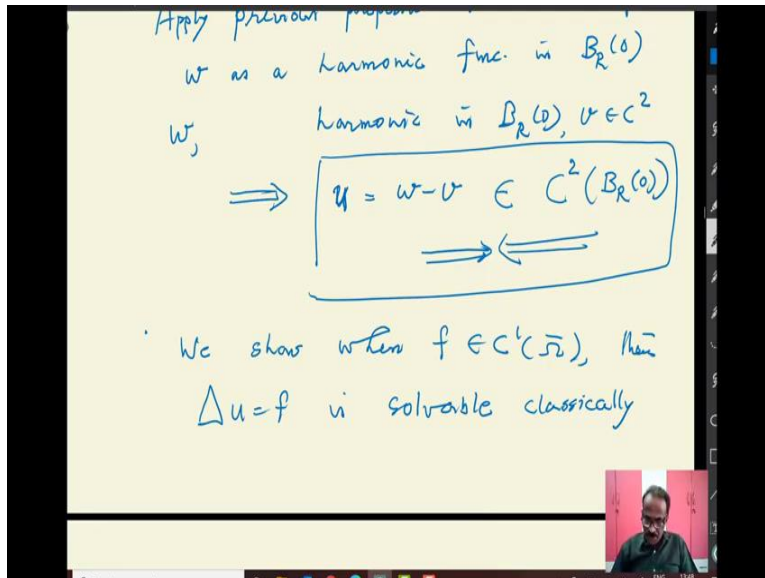 Apply previous
w as a harmonic func. in B_R(0)
w, harmonic in B_R(0), v ∈ C²
⟹ u = w-v ∈ C²(B_R(0))
⟹⟸
We show when f ∈ C¹(Ω̄), then
Δu = f is solvable classically